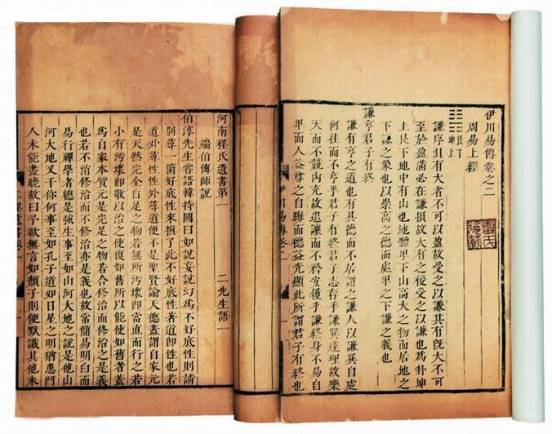 伊川易傳卷之二
周易上經
艮下
坤上
謙序卦有大者不可以盈故受之以謙其有旣大不可
至於盈滿必在謙損故大有之後受之以謙也為卦坤
上艮下地中有山也地體卑下山高大之物而居地之
下謙之象也以崇高之德而處卑之下謙之義也
謙亨君子有終
謙有亨之道也有其德而不居謂之謙人以謙巽自處
何往而不亨乎君子有終君子志存乎謙巽達理故樂
天而不競内充故退讓而不矜安履乎謙終身不易自
卑而人益尊之自晦而德益光顯此所謂君子有終也
伊川易傳卷二
河南程氏遺書第
二先生語一
端伯傳師說
伯淳先生嘗語韓持國曰如說妄說幻為不好底性則請
別尋一箇好底性來換了此不好底性著道即性也若
道外尋性性外尋道便不是聖賢論天德蓋謂自家元
是天然完全自足之物若無所汚壞即當直而行之若
小有汚壞即敬以治之使復如舊所以能使如舊者蓋
為自家本質元是完足之物若合修治而修治之是義
也若不消修治而不修治亦是義也故常簡易明白而
易行禪學者總是强生事至如山河大地之說是他山
河大地又干你何事至如孔子道如日星之明猶患門
人未能盡曉故曰予欲無言如顏子則便默識其他未